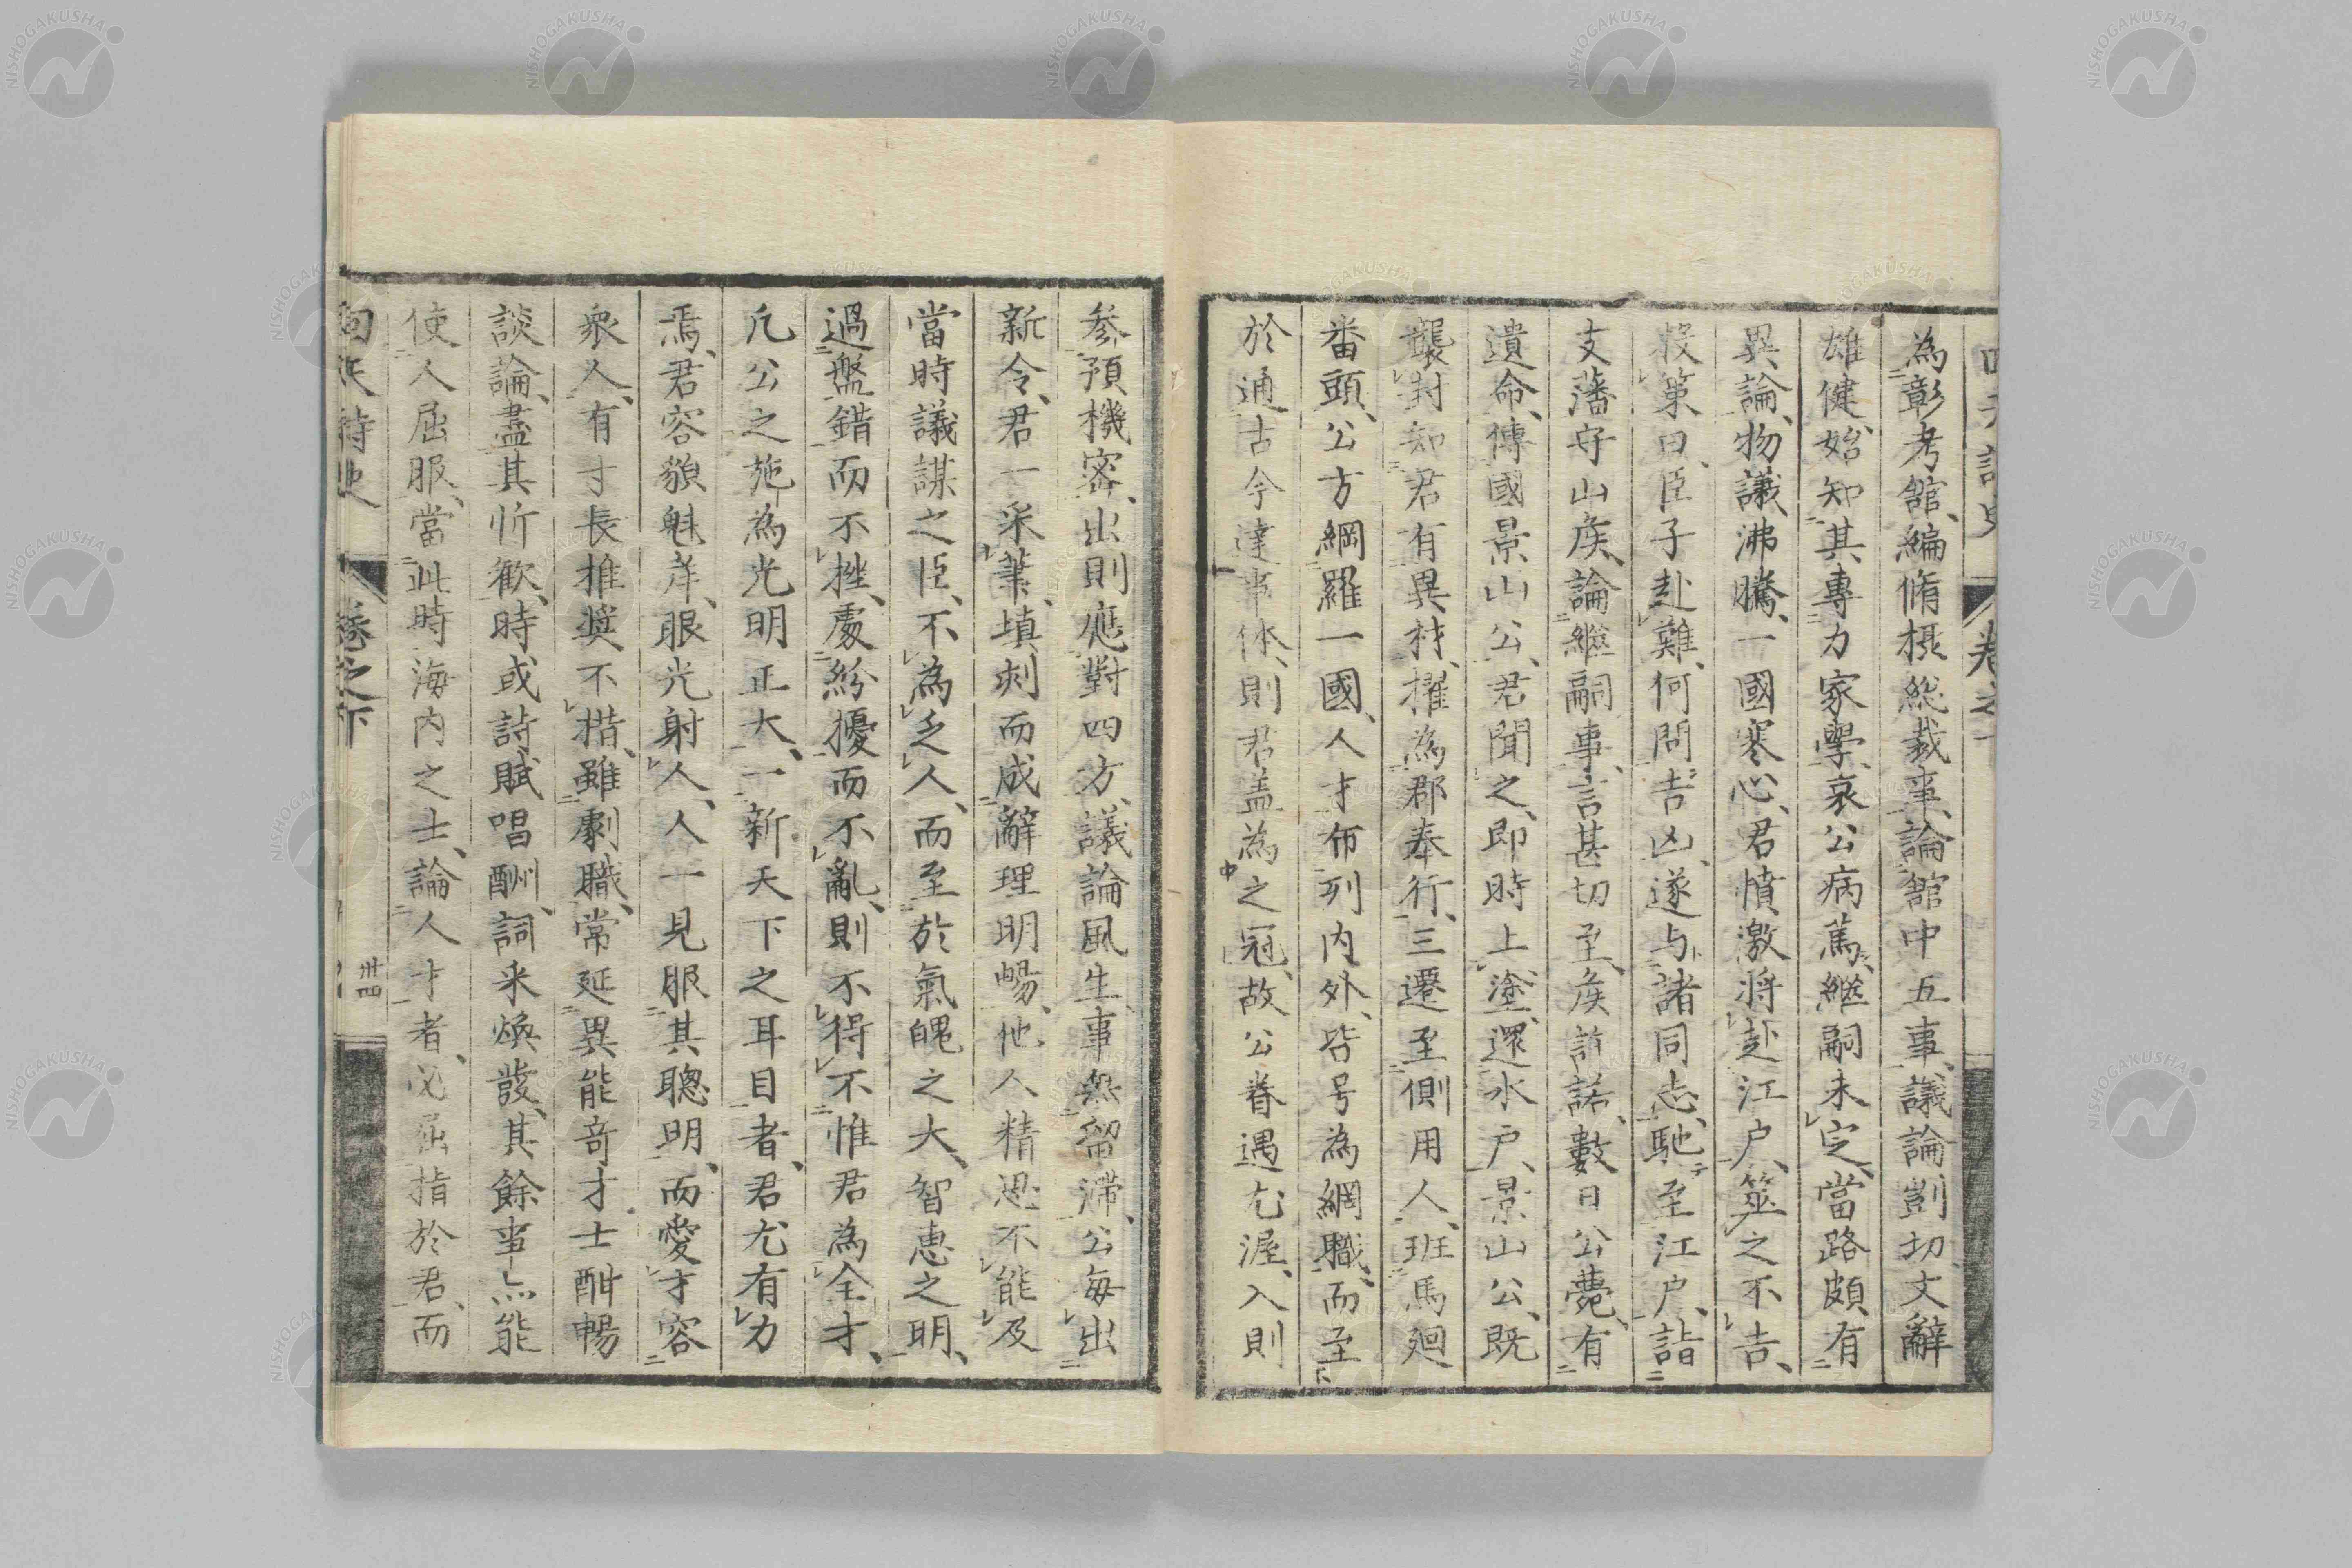 為彰考館、編脩摂総裁事、論館中五事、議論剴切、文辭
雄健、始知其專力家學、哀公病篤、繼嗣未定、當路頗有
異論、物議沸騰、一國寒心、君憤激將赴江戸、筮之不吉、
投策曰、臣子赴難、何問吉凶、遂与諸同志、馳至江戸、詣
支藩守山侯、論繼嗣事、言甚切至、侯許諾、數日公薨、有
遺命、傳國景山公、君聞之、即時上塗、還水戸、景山公、既
襲封知君有異材、擢為郡奉行、三遷至側用人、班馬廻
番頭、公方綱羅一國、人才布列内外、皆号為網職、而至
於通古今達事体、則君盖為之冠、故公眷遇尤渥、入則
參預機密、出則應對四方、議論風生、事無留滞、公毎出
新令、君一采筆、填刻而成、辭理明暢、他人精思不能及
當時議謀之臣、不為乏人、而至於氣魄之大、智恵之明、
過盤錯而不挫、處紛擾而不亂、則不得不惟君為全才、
凡公之施為光明正大、一新天下之耳目者、君尤有力
焉、君容貌魁岸、眼光射人、人一見服其聰明、而愛才容
衆、人有寸長推奨不措、雖劇職、常延異能奇才士酣暢
談論、盡其忻歓、時或詩賦唱酬、詞采煥發、其餘事亦能
使人屈服、當此時海内之士、論人才者、必屈指於君、而
卷之下
卅四